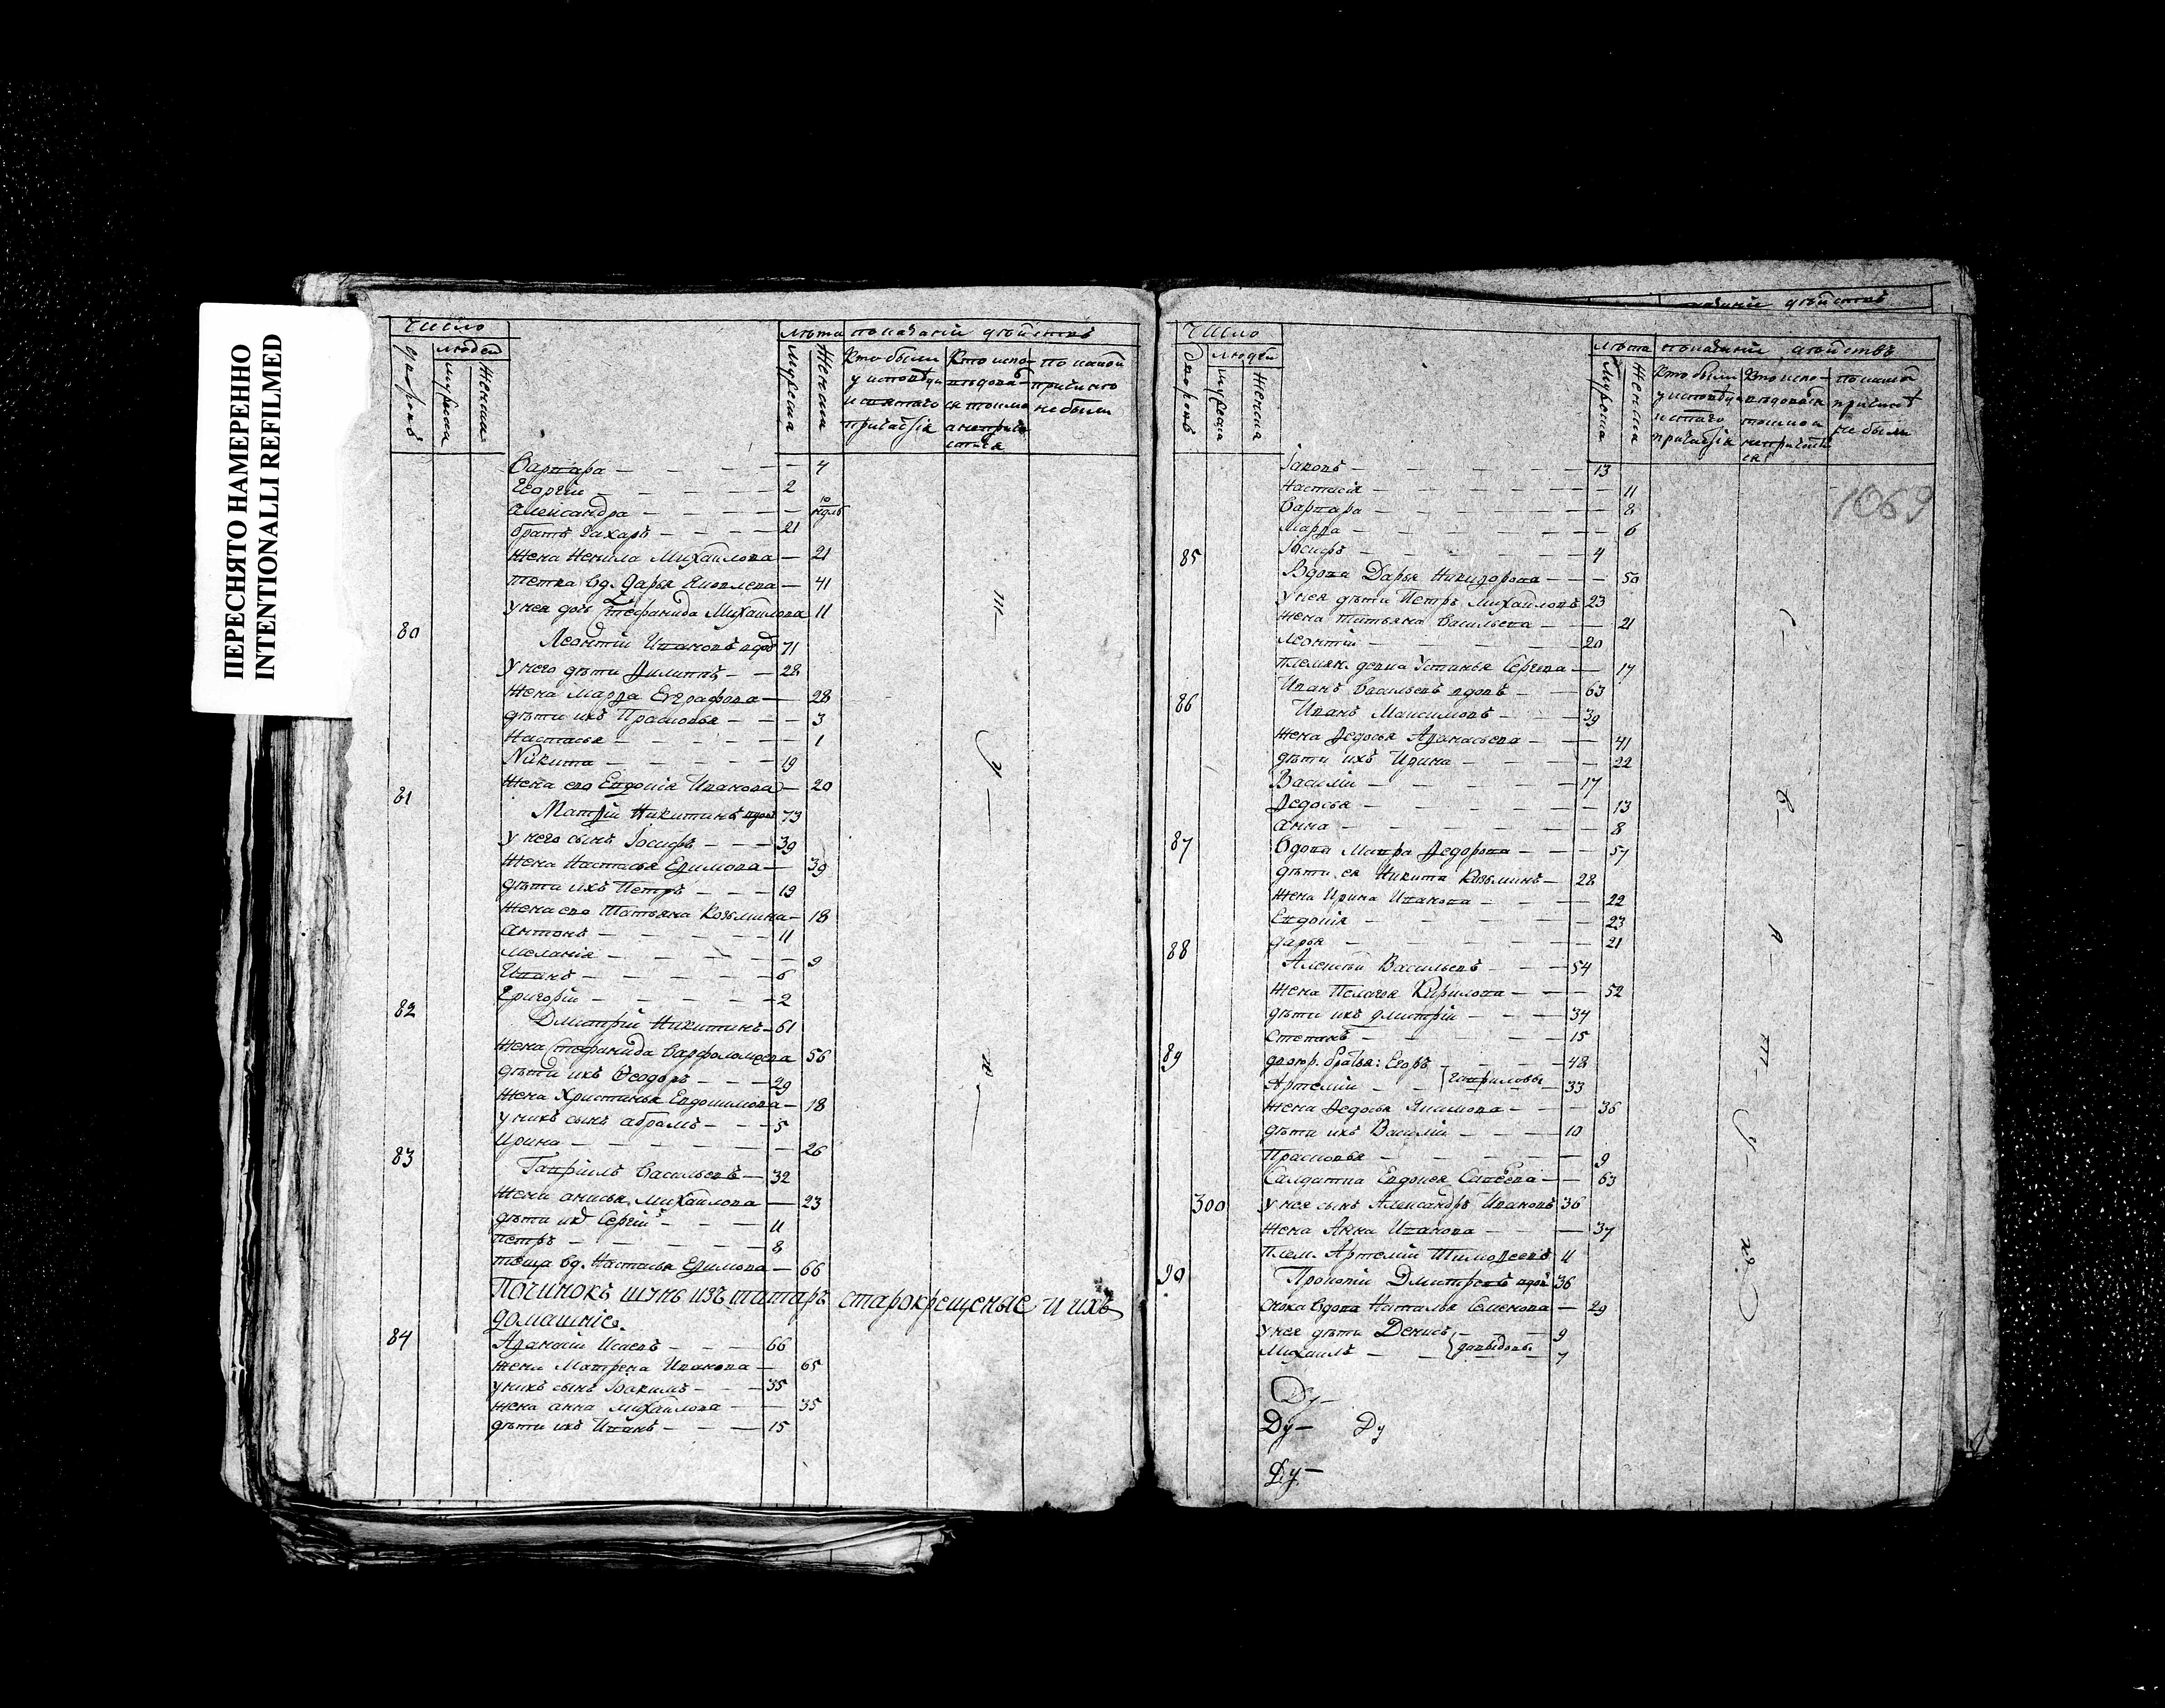 ПЕРЕСНЯТО НАМЕРЕННО
INTENTIONALLI REFILMED
Число
людей
дворовъ
мужска
женска
лѣта показанiй дѣйствъ
мужеска
женска
Кто были у исповѣди и святаго причастiя
Кто испо-вѣдовался токмо а непричастился
по какой причинѣ не были
Варвара — 4
Георгiй — 2
Александра — 10 ндль
братъ Захаръ — 21
жена Ненила Михайлова — 21
тетка вд. Дарья Яковлева — 41
у нея дочь Стефанида Михайлова 11
80 Леонтiй Ивановъ вдовъ 71
у него дѣти Филиппъ — 28
жена Марѳа Евграфова — 28
дѣти ихъ Прасковья — 3
Настасья — 1
Никита — 19
жена его Евдокiя Иванова — 20
81 Матѳiй Никитинъ вдовъ 73
у него сынъ Iосифъ — 39
жена Настасья Ефимова — 39
дѣти ихъ Петръ — 19
жена его Татьяна Козьмина — 18
Антонъ — 11
Меланiя — 9
Иванъ — 6
Григорiй — 2
82 Дмитрiй Никитинъ — 61
жена Стефанида Варфоломеева 56
дѣти ихъ Ѳеодоръ — 29
жена Христинья Евдокимова — 18
у нихъ сынъ Абрамъ — 5
Ирина — 26
83 Гаврiилъ Васильевъ — 32
жена Анисья Михайлова — 23
дѣти ихъ Сергiй — 11
Петръ — 8
теща вд. Настасья Ефимова — 66
Починокъ Шунь изъ татаръ старокрещеные и ихъ
домашнiе.
84 Аѳанасiй Исаевъ — 66
жена Матрена Иванова — 65
у нихъ сынъ Iоакимъ — 35
жена Анна Михайлова — 35
дѣти ихъ Иванъ — 15
Число
людей
дворовъ
мужеска
женска
лѣта показанiй дѣйствъ
мужеска
женска
Кто были у исповѣди и святаго причастiя
Кто испо-вѣдовался токмо а непричастился
по какой причинѣ не были
1069
Iаковъ — 13
Настасiя — 11
Варвара — 8
Марѳа — 6
Iосифъ — 4
85 Вдова Дарья Никифорова — 50
у нея дѣти Петръ Михайловъ 23
жена Татьяна Васильева — 21
Леонтiй — 20
племян. девка Устинья Сергева — 17
Иванъ Васильевъ вдовъ — 63
86 Иванъ Максимовъ — 39
жена Ѳедосья Аѳанасьева — 41
дѣти ихъ Ирина — 22
Василiй — 17
Ѳедосья — 13
Анна — 8
87 Вдова Мавра Ѳедорова — 57
дѣти ея Никита Козьминъ — 28
жена Ирина Иванова — 22
Евдокiя — 23
Дарья — 21
88 Алексѣй Васильевъ — 54
жена Пелагья Кирилова — 52
дѣти ихъ Дмитрiй — 34
Степанъ — 15
89 двоюр. братья: Егоръ — 48
Артемiй — Гавриловы — 33
жена Ѳедосья Якимова — 36
дѣти ихъ Василiй — 10
Прасковья — 9
Салдатка Евдокея Савѣева — 63
300 у нея сынъ Александръ Ивановъ 36
жена Анна Иванова — 37
плем. Артемiй Тимоѳеевъ 11
90 Прокопiй Дмитревъ вдовъ 36
сноха вдова Наталья Семенова — 29
у нея дѣти Денисъ — 9
Михаилъ — Давыдовы — 7
Ду —
Ду — Ду
Ду —